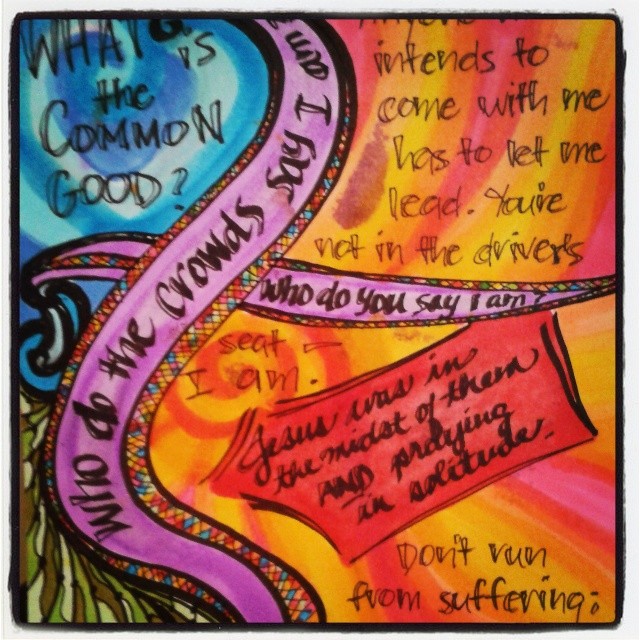 WHAT is
the
COMMON
GOOD?
who do the crowds say I am
Anyone
intends to
come with me
has to let me
lead. You're
not in the driver's
seat –
I am.
who do you say I am?
Jesus was in
the midst of them
AND praying
in solitude.
Don't run
from suffering;